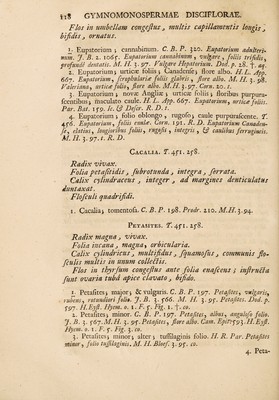 128 GYMNOMONOSPERMAE DISCIFLORAE.
Flos in umbellam congestus, multis capillamentis longis,
bifidis, ornatus.
1. Eupatorium; cannabinum. C. B. P. 320. Eupatorium adulteri-
num. J. B. 2. 1065. Eupatorium cannabinum, vulgare, foliis trifidis,
profunde dentatis. M. H. 3. 97. Vulgare Hepatorium. Dod. p. 28. †. ag.
2. Eupatorium; urticæ foliis; Canadense; flore albo. H. L. App.
667. Eupatorium, scrophulariæ foliis glabris, flore albo. M. H. 3. 98.
Valeriana, urticæ folio, flore albo. M. H. 3. 97. Corn. 20. 1.
3. Eupatorium; novæ Angliæ; urticæ foliis; floribus purpura-
scentibus; maculato caule. H. L. App. 667. Eupatorium, urticæ foliis.
Par. Bat. 159. Ic. & Descr. R. D. 1.
4. Eupatorium; folio oblongo, rugoso; caule purpurascente. T.
456. Eupatorium, foliis enulæ. Corn. 191. R. D. Eupatorium Canaden-
se, elatius, longioribus foliis, rugosis, integris, & caulibus ferrugineis.
M. H. 3. 97. 1. R. D.
CACALIA. T. 451. 258.
Radix vivax.
Folia petasitidis, subrotunda, integra, serrata.
Calix cylindraceus, integer, ad margines denticulatus
duntaxat.
Flosculi quadrifidi.
1. Cacalia; tomentosa. C. B. P. 198. Prodr. 210. M. H. 3. 94.
PETASITES. T. 451. 258.
Radix magna, vivax.
Folia incana, magna, orbicularia.
Calix cylindricus, multifidus, squamosus, communis flo-
sculis multis in unum collectis.
Flos in thyrsum congestus ante folia enascens; instructa
sunt ovaria tubâ apice clavato, bifido.
1. Petasites; major; & vulgaris. C. B. P. 197. Petasites, vulgaris,
rubens, rotundiori folio. J. B. 3. 566. M. H. 3. 95. Petasites. Dod. p.
597. H. Eyst. Hyem. o. 1. F. 5. Fig. 1. †. co.
2. Petasites; minor. C. B. P. 197. Petasites, albus, anguloso folio.
J. B. 3. 567. M. H. 3. 95. Petasites, flore albo. Cam. Epit. 593. H. Eyst.
Hyem. o. 1. F. 5. Fig. 3. co.
3. Petasites; minor; alter; tussilaginis folio. H. R. Par. Petasites
minor, folio tussilaginis. M. H. Blœs. 3. 95. co.
4. Peta-